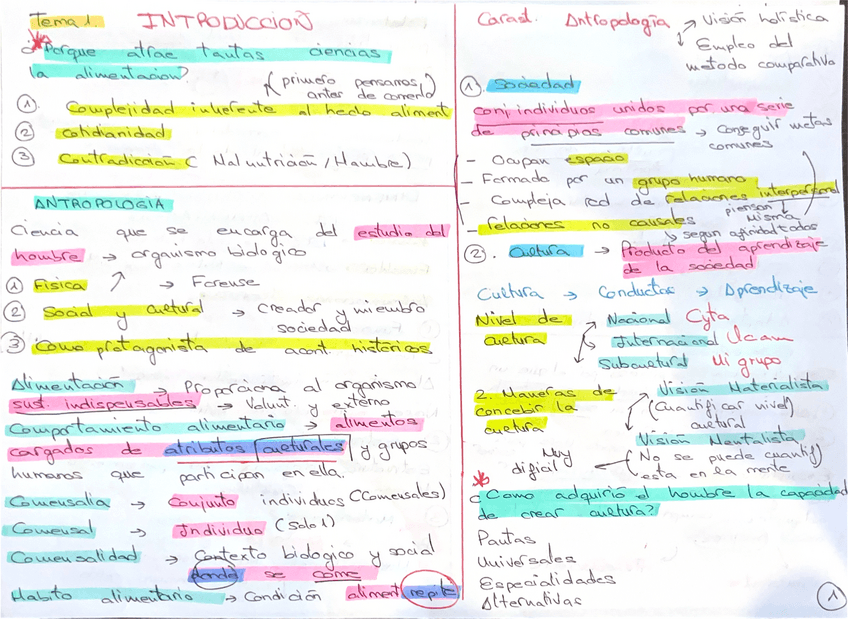 Tema 1. INTRODUCCION
¿Porque atrae tantas ciencias
la alimentacion?
(primero pensamos
antes de comerlo)
① Complejidad inherente al hecho aliment
② cotidianidad
③ Contradicción (Malnutrición / Hambre)
ANTROPOLOGIA
Ciencia que se encarga del estudio del
hombre → organismo biologico
① Fisica → Forense
② Social y cultural → Creador y miembro
sociedad
③ Como protagonista de acont. históricos
Alimentación → Proporciona al organismo
sust. indispensables → Volunt. y externo
Comportamiento alimentario → alimentos
cargados de atributos culturales y grupos
humanos que participan en ella.
Comensalia → Conjunto individuos (Comensales)
Comensal → Individuo (solo 1)
Comensalidad → Contexto biologico y social
donde se come
Habito alimentario → Condición aliment repite
Caract. Antropología → Visión holística
Empleo del
metodo comparativo
① Sociedad
conj. individuos unidos por una serie
de principios comunes → Conseguir metas
comunes
- Ocupan espacio
- Formado por un grupo humano
- Compleja red de relaciones interpersonal
piensan
misma
- relaciones no causales
según afinidad todos
② Cultura → Producto del aprendizaje
de la sociedad
Cultura → Conductas → Aprendizaje
Nivel de → Nacional Cyta
cultura Internacional Ucam
Subcultural Mi grupo
2. Maneras de
concebir la
cultura
Visión Materialista
(Cuantificar nivel)
cultural
Visión Mentalista
Muy
dificil
(No se puede cuantif)
esta en la mente
¿Como adquirio el hombre la capacidad
de crear cultura?
Pautas
Universales
Especialidades
Alternativas
①